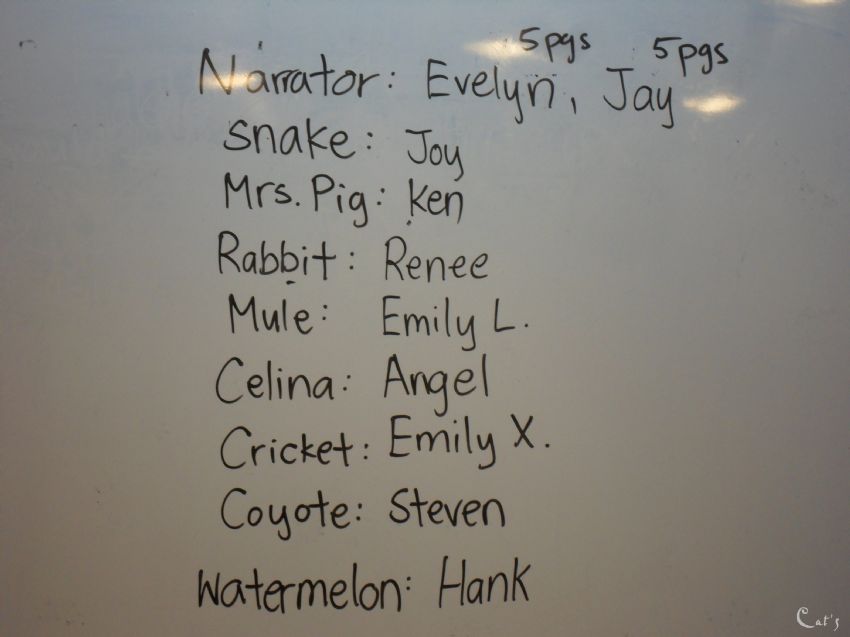 5pgs 5pgs
Narrator: Evelyn, Jay
Snake: Joy
Mrs. Pig: Ken
Rabbit: Renee
Mule: Emily L.
Celina: Angel
Cricket: Emily X.
Coyote: Steven
Watermelon: Hank
Cat's